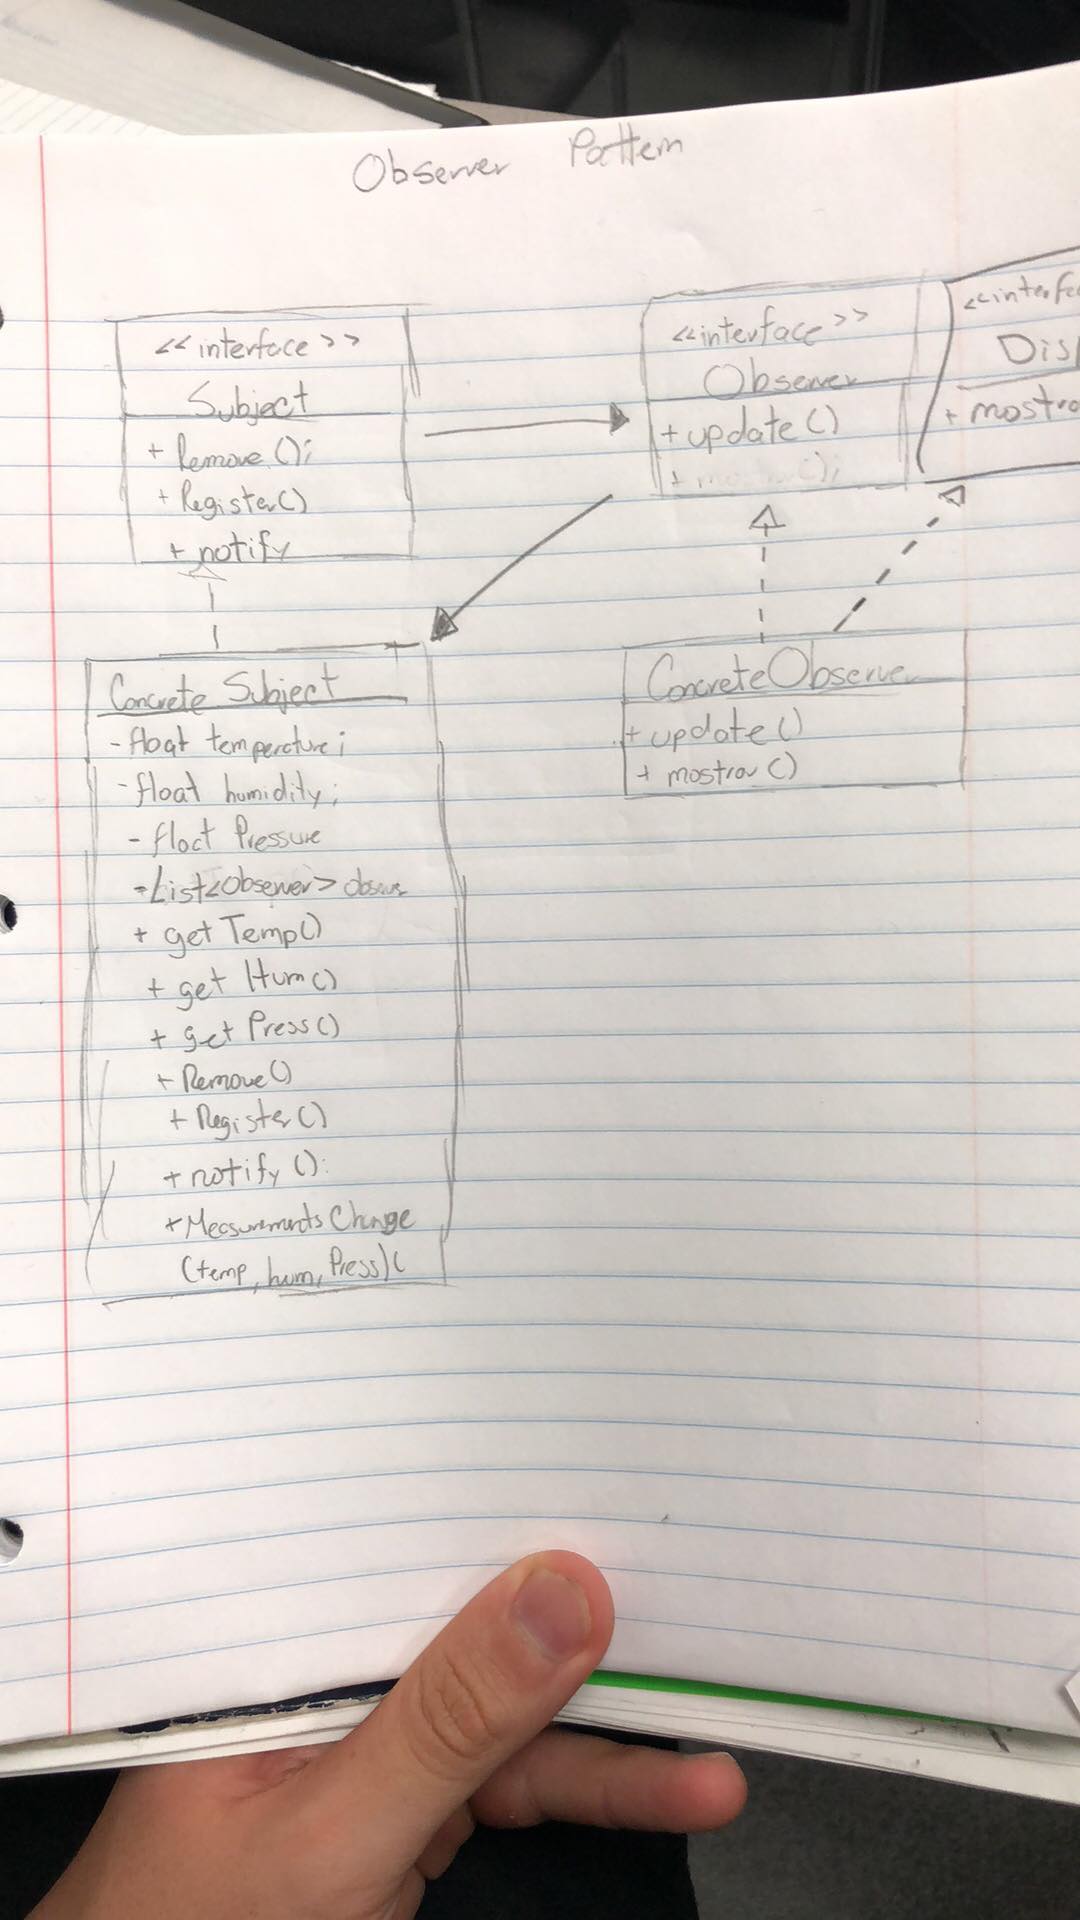 Observer Pattern
<<interface>>
Subject
+ Remove();
+ Register()
+ notify
<<interface>>
Observer
+ update()
+ mostrar();
<<interfac
Disp
+ mostra
Concrete Subject
- float temperature;
- float humidity;
- float Pressure
- List<Observer>
+ getTemp()
+ get Hum()
+ get Press()
+ Remove()
+ Register()
+ notify():
+ Measurements Change
(temp, hum, Press)(
Concrete Observer
+ update()
+ mostrar()